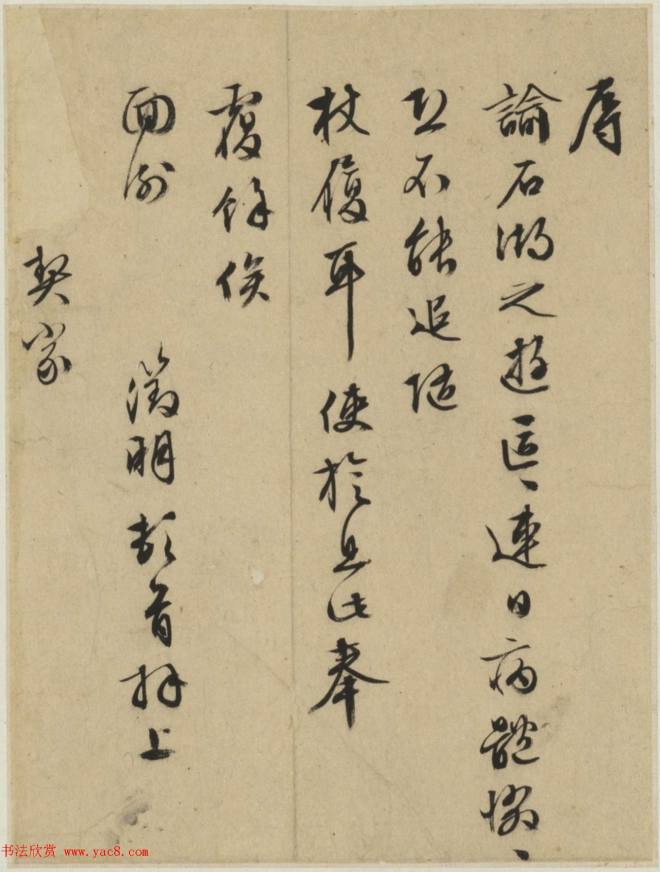 辱
諭石湖之遊區〻連日病體惙〻
恐不能追隨
杖屨耳使於且此奉
覆餘俟
面謝
徵明頓首拜上
契家
书法欣赏 www.yac8.com